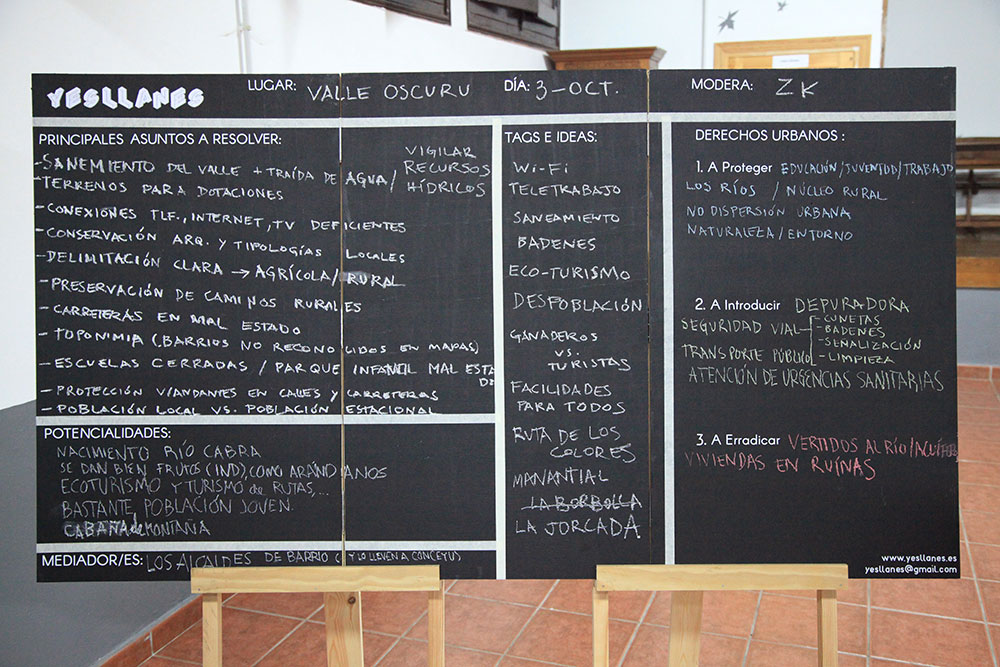 YESLLANES
LUGAR: VALLE OSCURU
DÍA: 3-OCT.
MODERA: ZK
PRINCIPALES ASUNTOS A RESOLVER:
- SANEMIENTO DEL VALLE + TRAÍDA DE AGUA / VIGILAR RECURSOS HÍDRICOS
- TERRENOS PARA DOTACIONES
- CONEXIONES TLF., INTERNET, TV DEFICIENTES
- CONSERVACIÓN ARQ. Y TIPOLOGÍAS LOCALES
- DELIMITACIÓN CLARA → AGRÍCOLA/RURAL
- PRESERVACIÓN DE CAMINOS RURALES
- CARRETERAS EN MAL ESTADO
- TOPONIMIA (BARRIOS NO RECONOCIDOS EN MAPAS)
- ESCUELAS CERRADAS / PARQUE INFANTIL MAL ESTADO
- PROTECCIÓN VIANDANTES EN CALLES Y CARRETERAS
- POBLACIÓN LOCAL VS. POBLACIÓN ESTACIONAL
POTENCIALIDADES:
NACIMIENTO RÍO CABRA
SE DAN BIEN FRUTOS (IND), COMO ARÁNDANOS
ECOTURISMO Y TURISMO de RUTAS,...
BASTANTE POBLACIÓN JOVEN.
CABAÑA de MONTAÑA
MEDIADOR/ES: LOS ALCALDES DE BARRIO (Y LO LLEVEN A CONCEYU)
TAGS E IDEAS:
Wi-Fi
TELETRABAJO
SANEAMIENTO
BADENES
ECO-TURISMO
DESPOBLACIÓN
GANADEROS
VS.
TURISTAS
FACILIDADES
PARA TODOS
RUTA DE LOS
COLORES
MANANTIAL
LA BORBOLLA
LA JORCADA
DERECHOS URBANOS :
1. A Proteger EDUCACIÓN/JUVENTUD/TRABAJO
LOS RÍOS / NÚCLEO RURAL
NO DISPERSIÓN URBANA
NATURALEZA/ENTORNO
2. A Introducir DEPURADORA
SEGURIDAD VIAL - CUNETAS
- BADENES
- SEÑALIZACIÓN
- LIMPIEZA
TRANSPORTE PÚBLICO
ATENCIÓN DE URGENCIAS SANITARIAS
3. A Erradicar VERTIDOS AL RÍO/
VIVIENDAS EN RUÍNAS
www.yesllanes.es
yesllanes@gmail.com